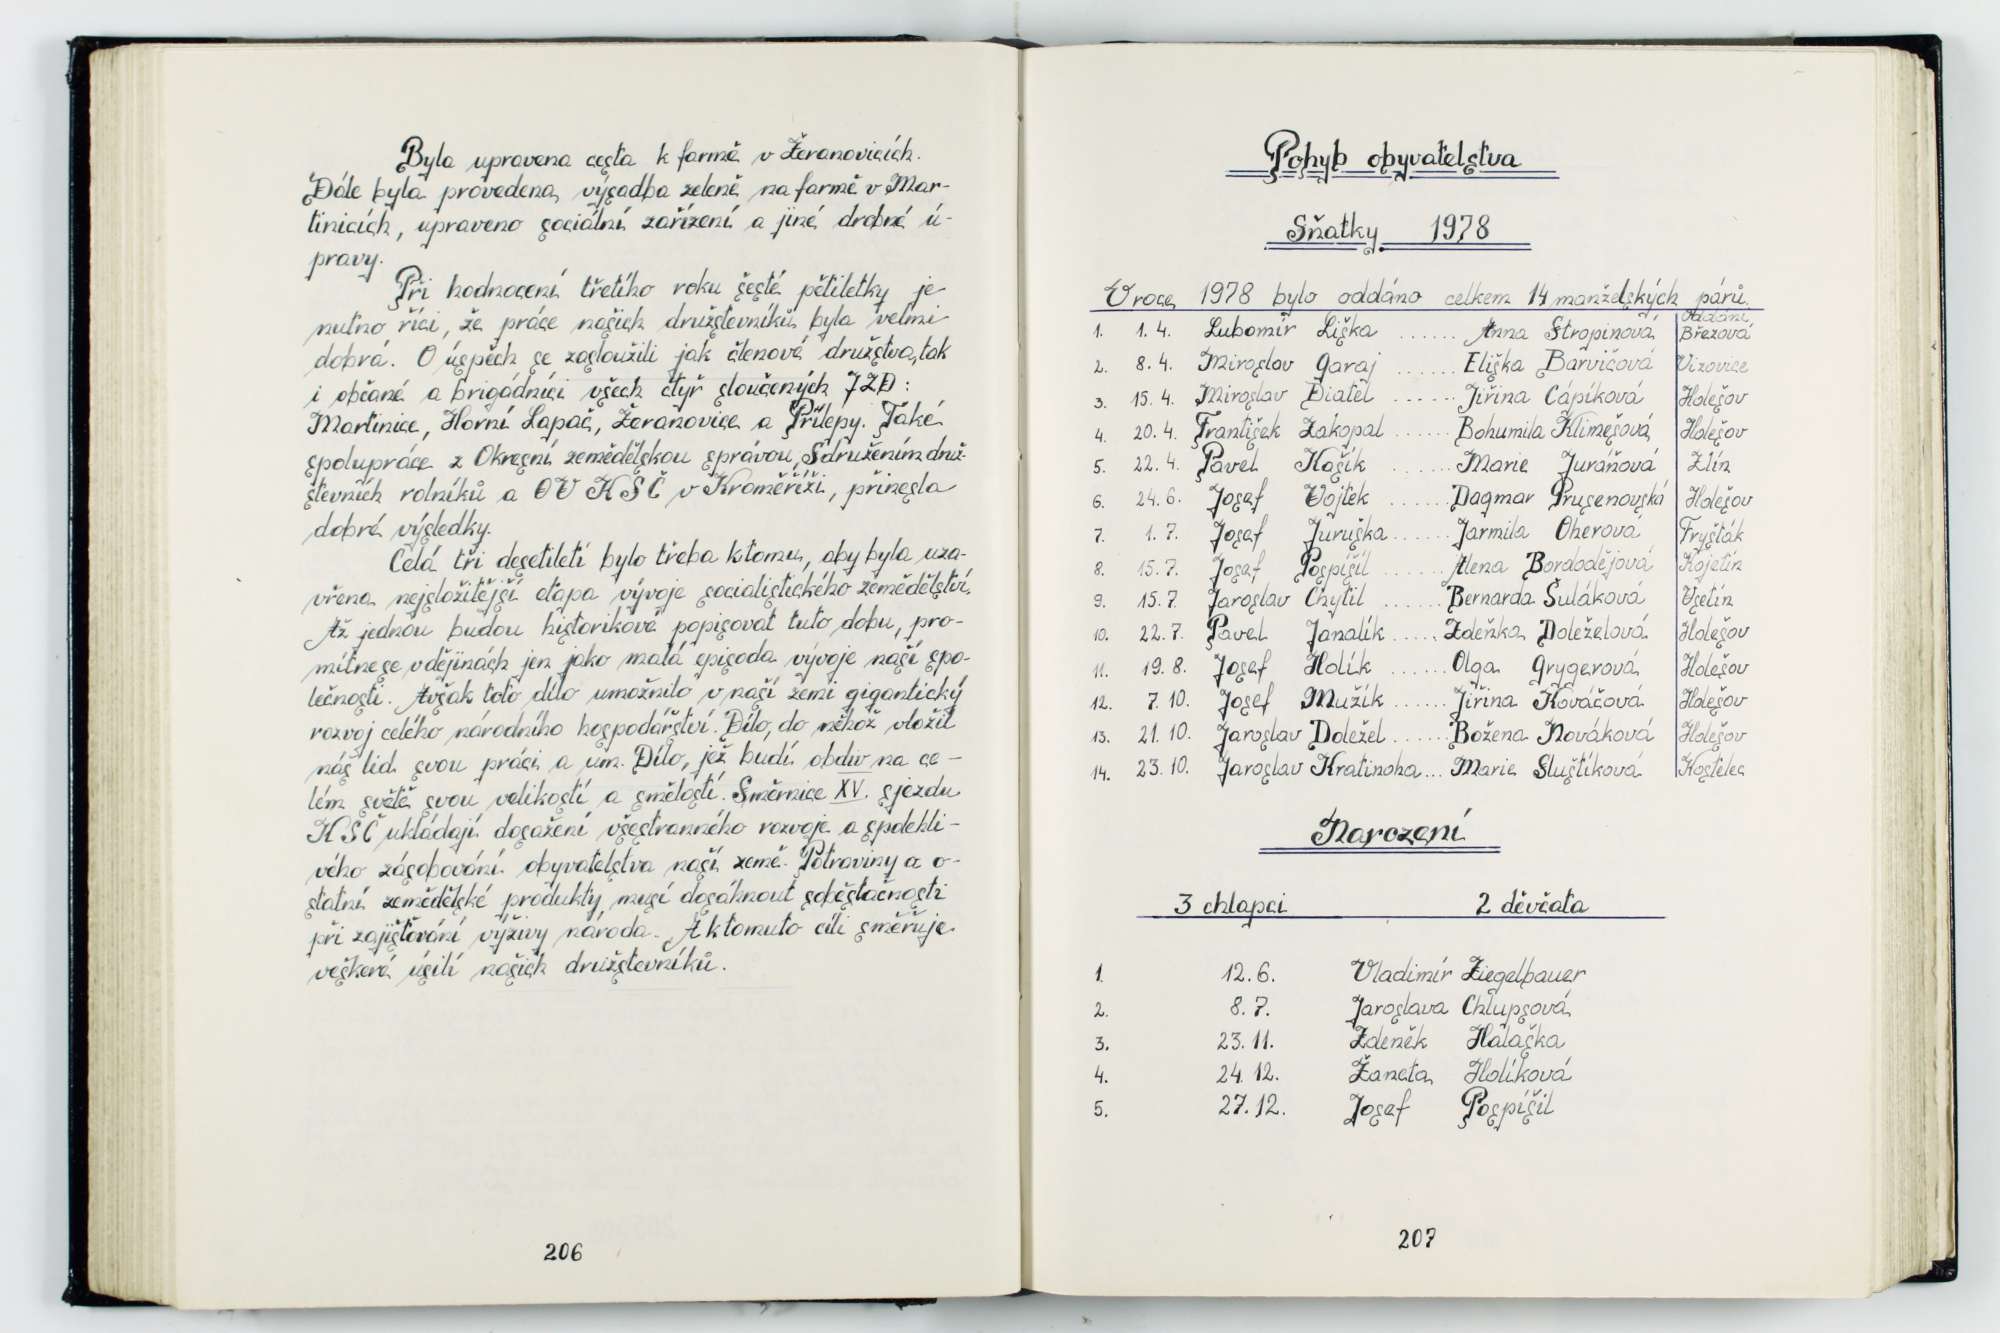 Byla upravena cesta k farmě v Žeranovicích.
Dále byla provedena výsadba zeleně na farmě v Mar-
tinicích, upraveno sociální zařízení a jiné drobné ú-
pravy.
Při hodnocení třetího roku šesté pětiletky je
nutno říci, že práce našich družstevníků byla velmi
dobrá. O úspěch se zasloužili jak členové družstva, tak
i občané a brigádníci všech čtyř sloučených JZD:
Martinice, Horní Lapač, Žeranovice a Přílepy. Také
spolupráce z Okresní zemědělskou správou, Sdružením druž-
stevních rolníků a OV KSČ v Kroměříži, přinesla
dobré výsledky.
Celá tři desetiletí bylo třeba k tomu, aby byla uza-
vřena nejsložitější etapa vývoje socialistického zemědělství.
Až jednou budou historikové popisovat tuto dobu, pro-
mítne se v dějinách jen jako malá episoda vývoje naší spo-
lečnosti. Avšak toto dílo umožnilo v naší zemi gigantický
rozvoj celého národního hospodářství. Dílo, do něhož vložil
náš lid svou práci a um. Dílo, jež budí obdiv na ce-
lém světě svou velikostí a smělostí. Směrnice XV. sjezdu
KSČ ukládají dosažení všestranného rozvoje a spolehli-
vého zásobování obyvatelstva naší země. Potraviny a o-
statní zemědělské produkty, musí dosáhnout soběstačnosti
při zajišťování výživy národa. A k tomuto cíli směřuje
veškeré úsilí našich družstevníků.
206
Pohyb obyvatelstva
Sňatky 1978
V roce 1978 bylo oddáno celkem 14 manželských párů.
Oddáni
1. 1. 4. Lubomír Liška ...... Anna Stropinová Březová
2. 8. 4. Miroslav Garaj ...... Eliška Barvičová Vizovice
3. 15. 4. Miroslav Diatel ...... Jiřina Cápíková Holešov
4. 20. 4. František Zakopal ...... Bohumila Klimešová Holešov
5. 22. 4. Pavel Kašík ...... Marie Juráňová Zlín
6. 24. 6. Josef Vojtek ...... Dagmar Prusenovská Holešov
7. 1. 7. Josef Juruška ...... Jarmila Oherová Fryšták
8. 15. 7. Josef Pospíšil ...... Alena Bordodějová Kojetín
9. 15. 7. Jaroslav Chytil ...... Bernarda Šuláková Vsetín
10. 22. 7. Pavel Janalík ..... Zdeňka Doleželová Holešov
11. 19. 8. Josef Holík ...... Olga Grygerová Holešov
12. 7. 10. Josef Mužík ...... Jiřina Kováčová Holešov
13. 21. 10. Jaroslav Doležel ...... Božena Nováková Holešov
14. 23. 10. Jaroslav Kratinoha ... Marie Sluštíková Kostelec
Narození
3 chlapci 2 děvčata
1. 12. 6. Vladimír Ziegelbauer
2. 8. 7. Jaroslava Chlupsová
3. 23. 11. Zdeněk Halaška
4. 24. 12. Žaneta Holíková
5. 27. 12. Josef Pospíšil
207